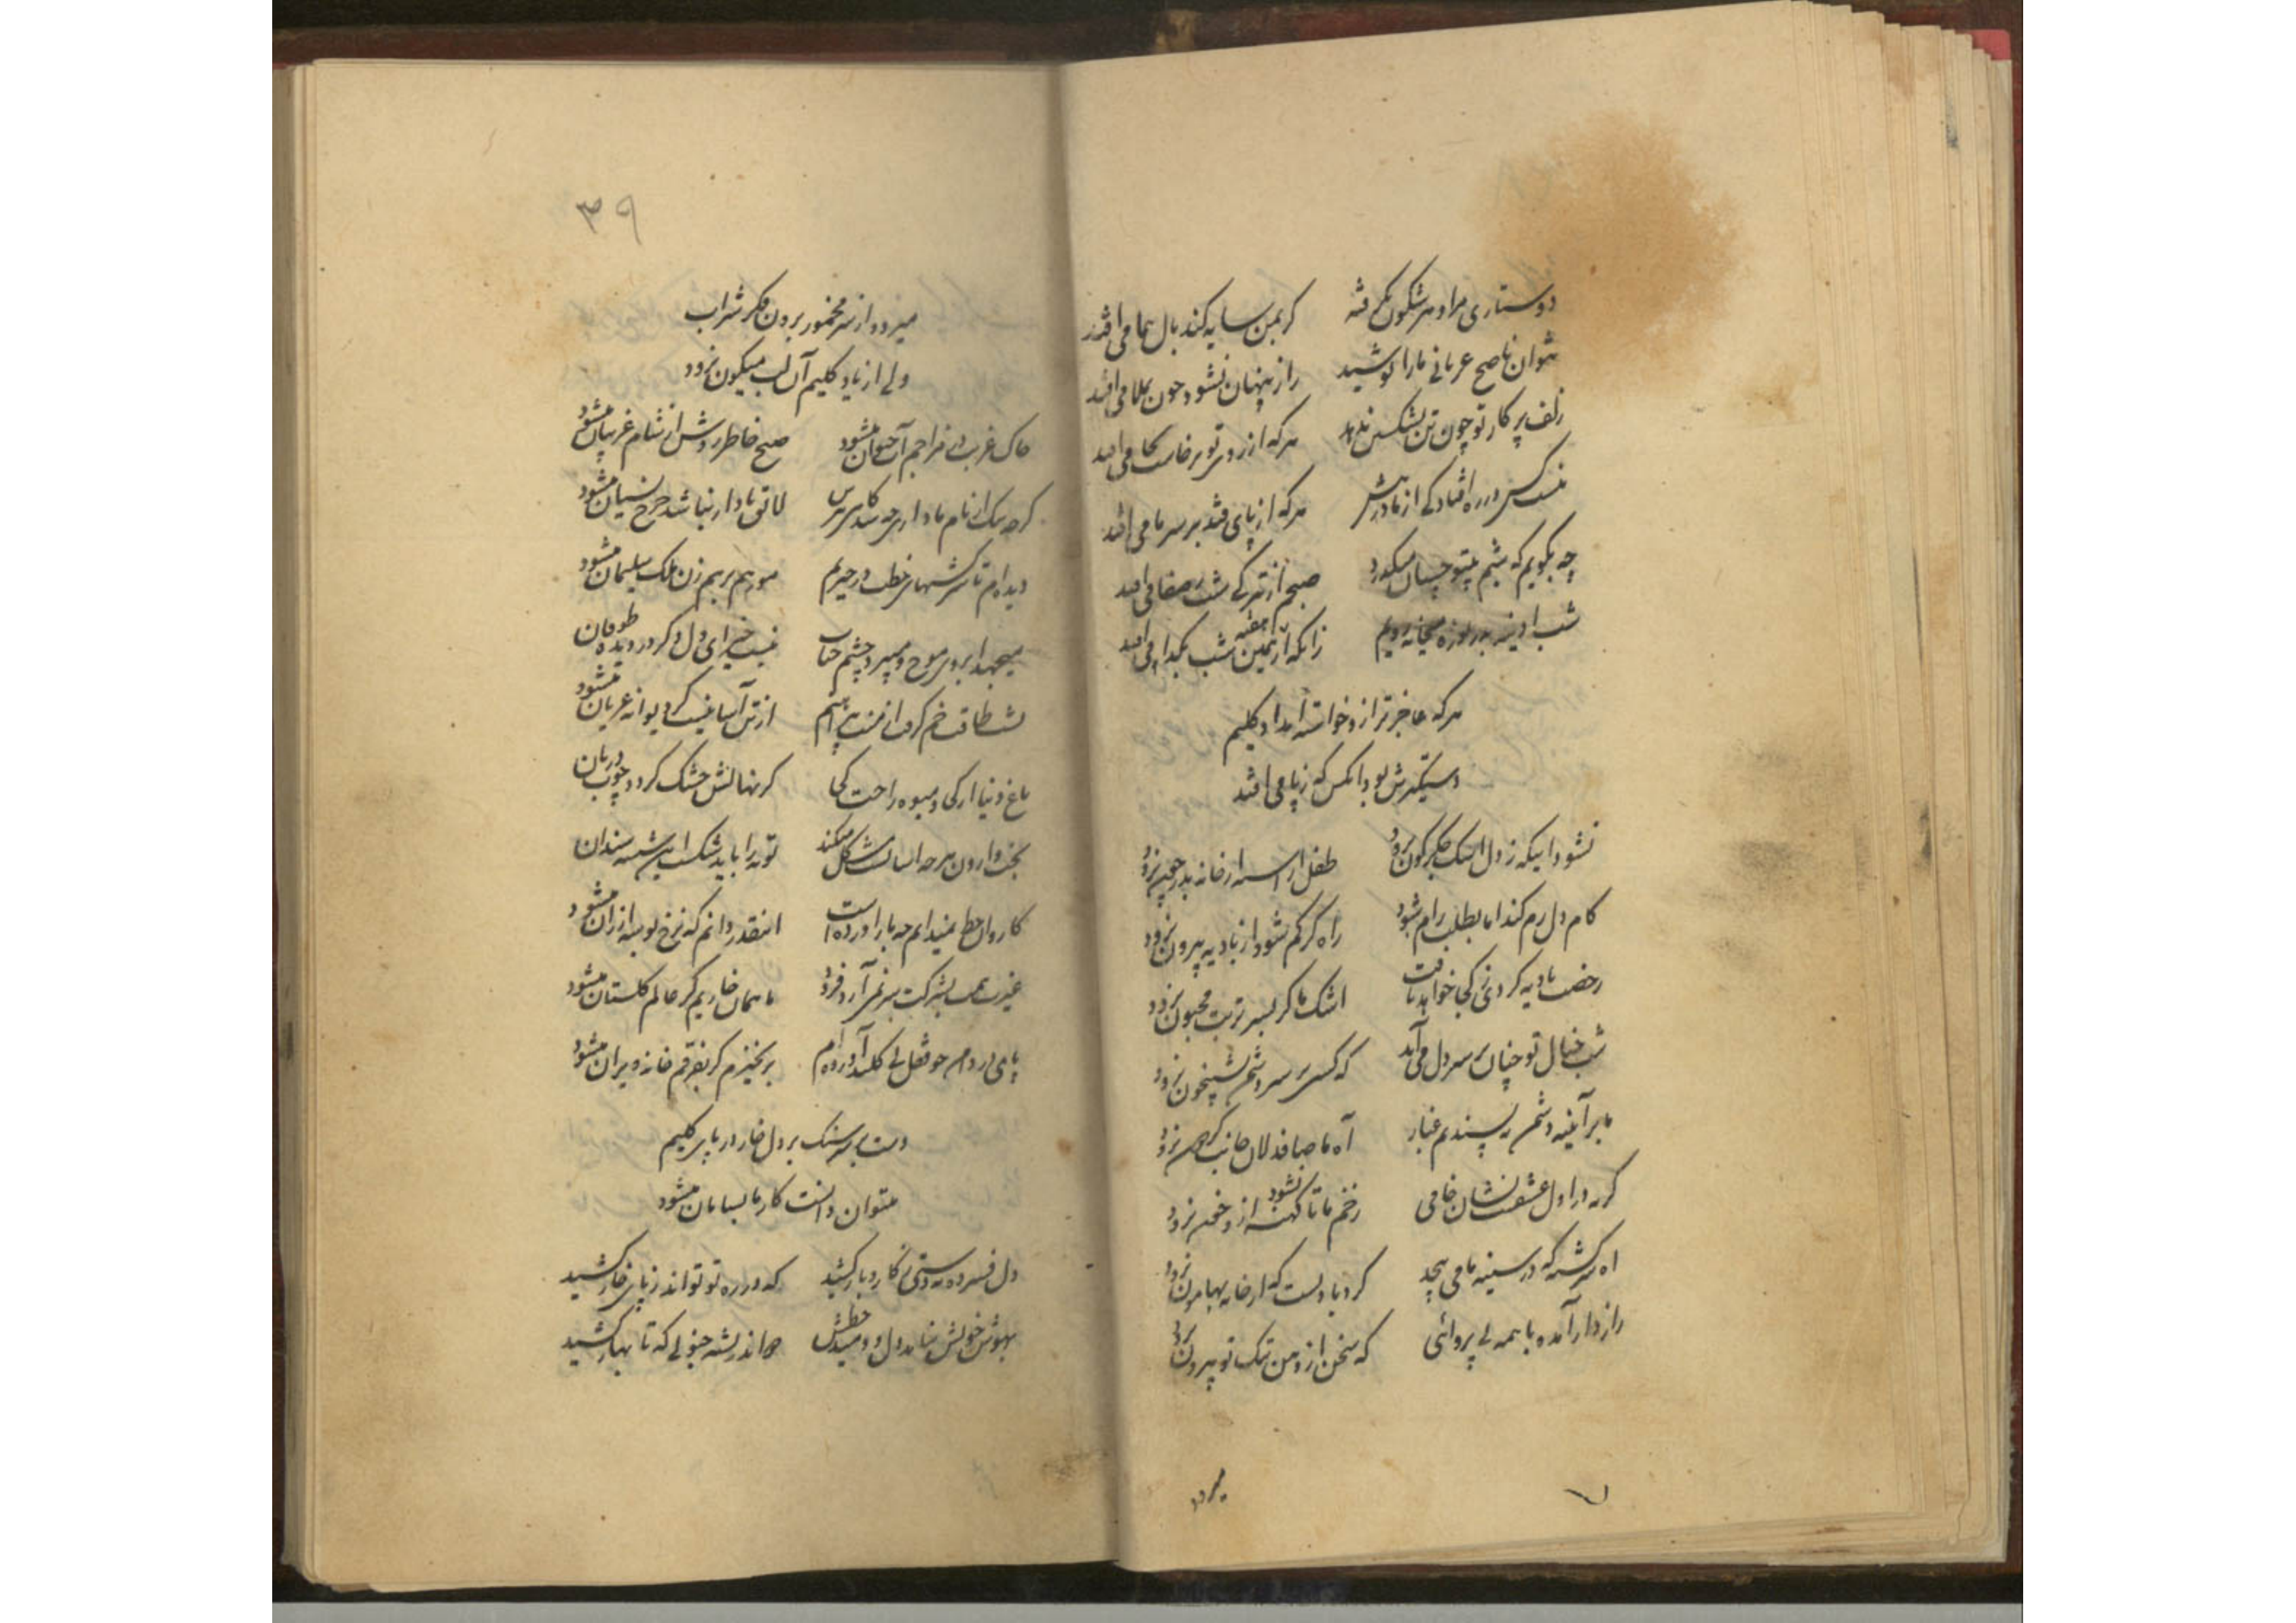 دوستاری مرا و سر شکون مکرفته گر بمن سایه کند بال هما می افتد
نتوان ناصح عریانی ما را پوشید راز پنهان نشود چون بملا می افتد
زلف پر کار تو چون تن بشکستن ندهد هر که از زور تو برخاست کجا می افتد
نیست کس در ره افتادگی از ما در پیش هر که از پای فتد بر سر ما می افتد
چه بگویم که شبم بیتو چسان میگذرد صبحم از تیرگی شب ز صفا می افتد
شب آدینه بدریوزه میخانه رویم زانکه از هفته همین شب بگدا می افتد
هر که عاجزتر ازو خواسته امداد کلیم
دستگیرش بود آنکس که ز پا می افتد
نشود اینکه ز دل اشک جگرگون نرود طفل اراسته از خانه بدر چون نرود
کام دل رم کند اما بطلب رام شود راه گر گم شود از بادیه بیرون نرود
رخصت بادیه گردی ز کجا خواهد یافت اشک ما گر بسر تربت مجنون نرود
شب خیال تو چنان بر سر دل می آید که کسی بر سر دشمن بشبیخون نرود
ما بر آئینه دشمن نپسندیم غبار آه ما صافدلان جانب گردون نرود
گریه در اول عشقت نشان خامی زخم ما تا نشود کهنه ازو خون نرود
اه سرگشته که در سینه ما می پیچد گردبادیست که از خانه بهامون نرود
رازدار آمده با همه بی پروائی که سخن از دهن تنگ تو بیرون نرود
میرود
۳۹
میرود از سر مخمور برون فکر شراب
ولی از یاد کلیم آن لب میگون نرود
خاک غربت در مزاجم آب حیوان میشود صبح خاطر روشن از شام غریبان میشود
گرچه ننگ از نام ما دارد چه شد کاسه پرس لاتق ما دار نباشد خرج نسیان میشود
دیده ام تا سرکشیهای خطت در حیرتم مور هم بر هم زن ملک سلیمان میشود
میجهد ابروی موج و میپرد چشم حباب نیست خیر ای دل دگر در دیده طوفان میشود
از تن آسانیست گر دیوانه عریان میشود
باغ دنیا از کجا و میوه راحت کجا گر نهالش خشک گردد چوب دربان
بخت وارون هر چه آسانست مشکل میکند توبه را باید شکست این شیشه سندان
کاروان خط نمیدانم چه بار آورده است اینقدر دانم که نرخ بوسه ارزان میشود
غیرت همت بشرکت سر نمی آرد فرود ما همان خاریم گر عالم گلستان میشود
پای در دامن چو قفل بی کلید آورده ام بر نخیزم گر بفرقم خانه ویران میشود
دست بر سنگ بر دل خار در پا پر کلیم
میتوان دانست کار ما بسامان میشود
دل فسرده نه دستی ز کار و بار کشید که در ره تو تواند ز پای خار کشید
بهوش خویش نیامد دل و دمید خطش در اندیشه جنونی که تا بهار کشید